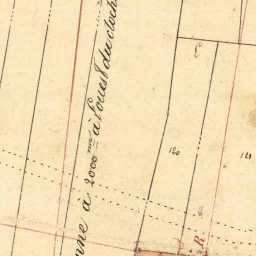 nne à 2000 m à l'ouest du cloch
180
R